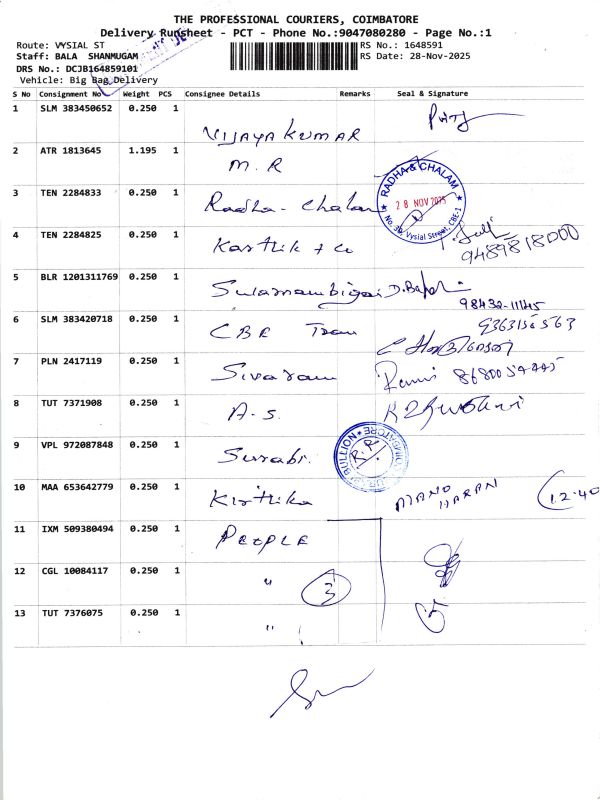 THE PROFESSIONAL COURIERS, COIMBATORE
Delivery Runsheet - PCT - Phone No.:9047080280 - Page No.:1
Route: VYSIAL ST RS No.: 1648591
Staff: BALA SHANMUGAM RS Date: 28-Nov-2025
DRS No.: DCJB164859101
Vehicle: Big Bag Delivery
S No Consignment No Weight PCS Consignee Details Remarks Seal & Signature
1 SLM 383450652 0.250 1 VIJAYA KUMAR
2 ATR 1813645 1.195 1 M. R
3 TEN 2284833 0.250 1 Radha - Chalam
RADHA & CHALAM
28 NOV 2025
Vysial Street, CBE-1
4 TEN 2284825 0.250 1 Karthik + Co 9489818000
5 BLR 1201311769 0.250 1 D. 98432-11145
6 SLM 383420718 0.250 1 CBE 9363156563
7 PLN 2417119 0.250 1 Sivaram
8 TUT 7371908 0.250 1 A. S.
9 VPL 972087848 0.250 1 Surabi.
BULLION COIMBATORE
R.P
10 MAA 653642779 0.250 1 Kirthika MANO HARAN 12.40
11 IXM 509380494 0.250 1 PEOPLE
12 CGL 10084117 0.250 1 " 3
13 TUT 7376075 0.250 1 "